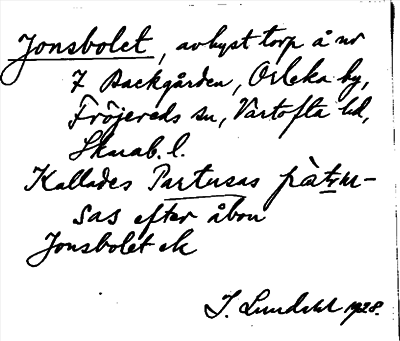 Jonsbolet, avhyst torp å nr
7 Backgården, Orleka by,
Fröjereds sn, Vartofta hd,
Skarab. l.
Kallades Partusas
sas efter åbon
Jonsbolet ek
J. Lundahl 1928.